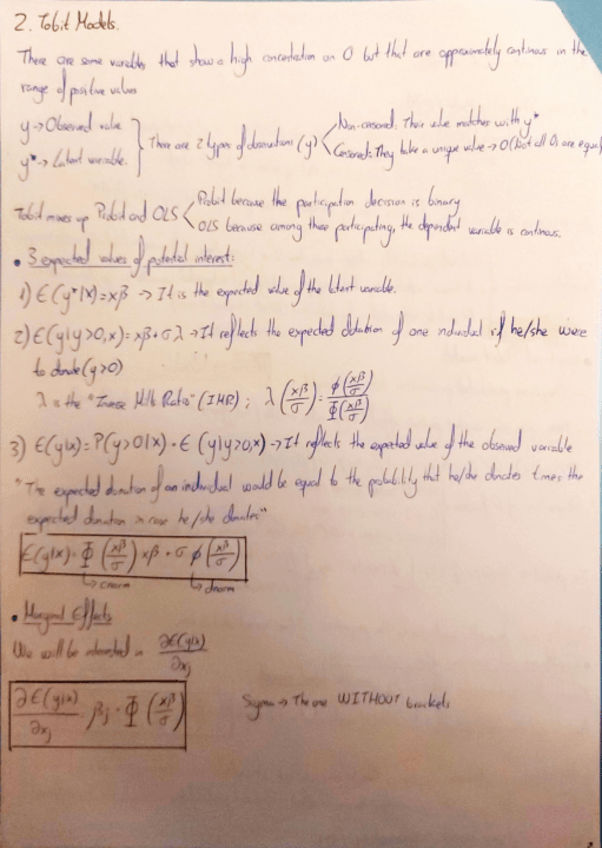 2. Tobit Models.
There are some variables that show a high concentration on 0 but that are approximately continuous in the
range of positive values
y → Observed value
y* → Latent variable.
There are 2 types of observations (y)
Non-censored: Their value matches with y*
Censored: They take a unique value → 0 (Not all 0s are equal
Tobit mixes up Probit and OLS
Probit because the participation decision is binary
OLS because among those participating, the dependent variable is continuous.
• 3 expected values of potential interest:
1) E(y*|x)=xβ → It is the expected value of the latent variable.
2) E(y|y>0,x)=xβ+σλ → It reflects the expected donation of one individual if he/she were
to donate (y>0)
λ is the "Inverse Mills Ratio" (IMR); λ(xβ/σ) = ϕ(xβ/σ)/Φ(xβ/σ)
3) E(y|x)=P(y>0|x)·E(y|y>0,x) → It reflects the expected value of the observed variable
"The expected donation of an individual would be equal to the probability that he/she donates times the
expected donation in case he/she donates"
E(y|x)=Φ(xβ/σ)xβ+σϕ(xβ/σ)
↳ cnorm ↳ dnorm
• Marginal Effects
We will be interested in ∂E(y|x)/∂xj
∂E(y|x)/∂xj = βj·Φ(xβ/σ)
Sigma → The one WITHOUT brackets